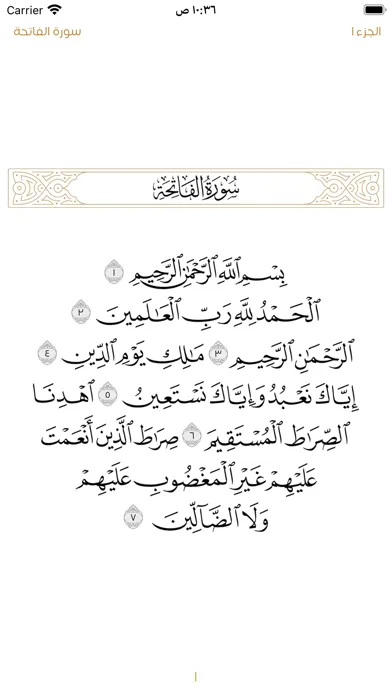 Carrier ١٠:٣٦ ص
الجزء ١ سورة الفاتحة
سُورَةُ الْفَاتِحَةِ
بِسْمِ اللَّهِ الرَّحْمَٰنِ الرَّحِيمِ ١
الْحَمْدُ لِلَّهِ رَبِّ الْعَالَمِينَ ٢
الرَّحْمَٰنِ الرَّحِيمِ ٣ مَالِكِ يَوْمِ الدِّينِ ٤
إِيَّاكَ نَعْبُدُ وَإِيَّاكَ نَسْتَعِينُ ٥ اهْدِنَا
الصِّرَاطَ الْمُسْتَقِيمَ ٦ صِرَاطَ الَّذِينَ أَنْعَمْتَ
عَلَيْهِمْ غَيْرِ الْمَغْضُوبِ عَلَيْهِمْ
وَلَا الضَّالِّينَ ٧
١